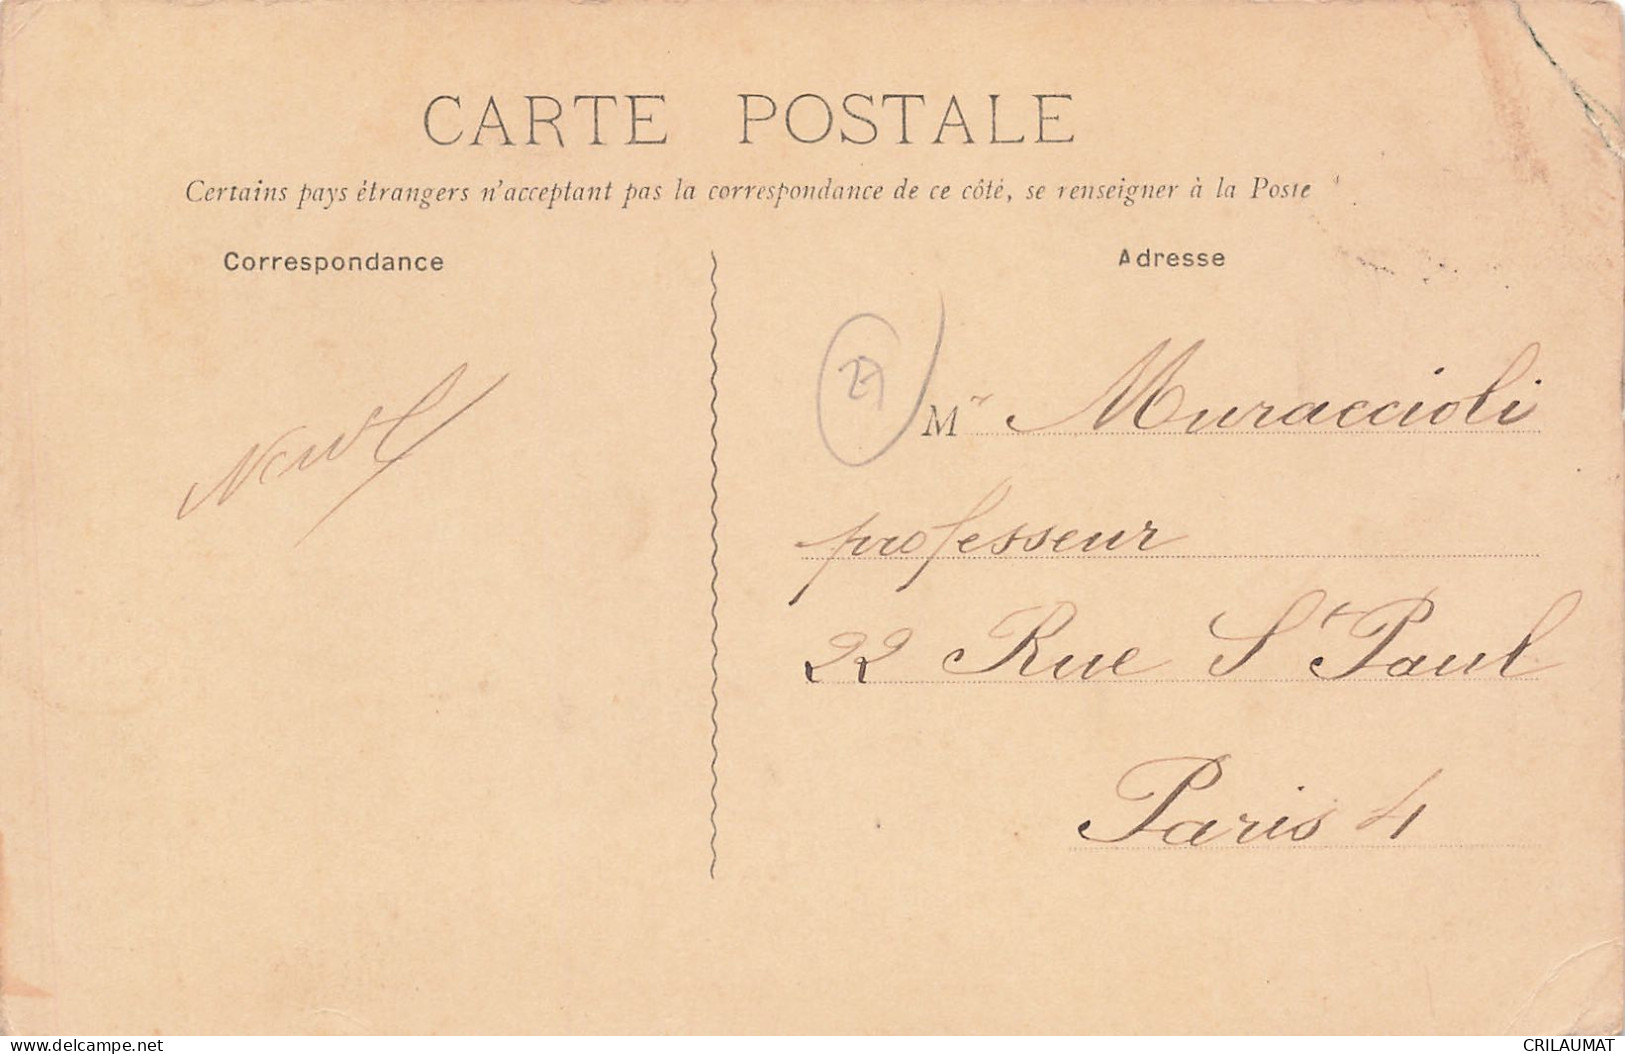 CARTE POSTALE
Certains pays étrangers n'acceptant pas la correspondance de ce côté, se renseigner à la Poste
Correspondance
Adresse
27
Mr Muraccioli
professeur
22 Rue St Paul
Paris 4
www.delcampe.net
CRILAUMAT